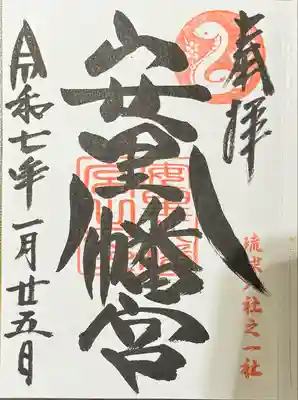 奉拝
琉球八社之一社
安里八幡宮
令和七年一月廿五日